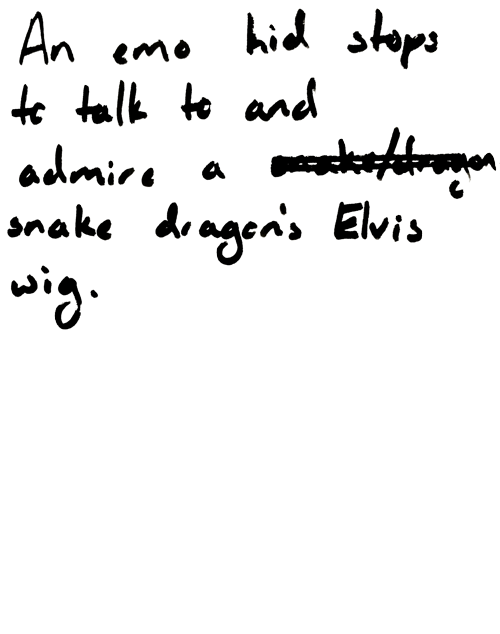 An emo kid stops
to talk to and
admire a snake/dragon
snake dragon's Elvis
wig.